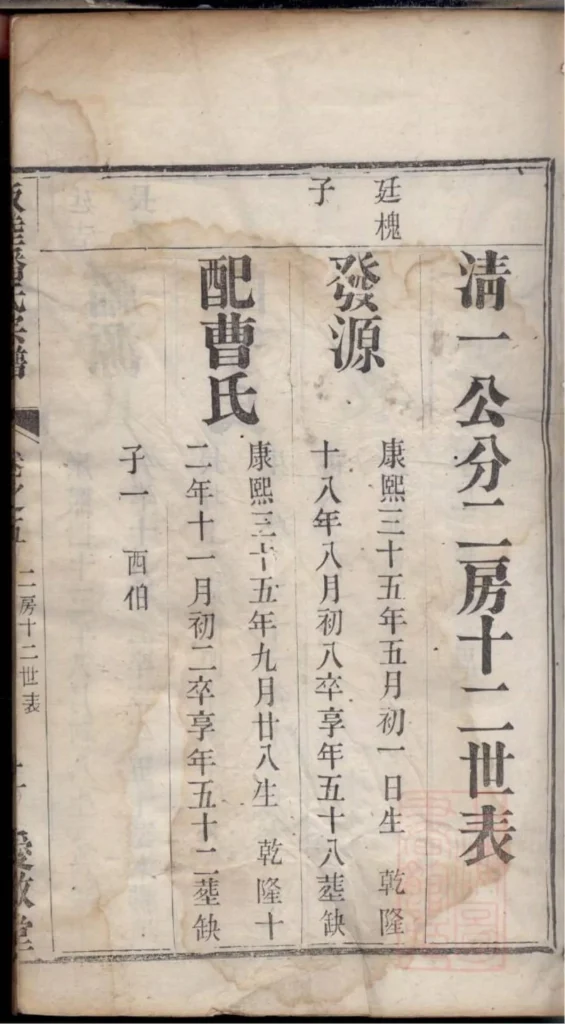 清一公分二房十二世表
廷槐
子
發源
康熙三十五年五月初一日生 乾隆
十八年八月初八卒享年五十八塟缺
配曹氏
康熙三十五年九月廿八生 乾隆十
二年十一月初二卒享年五十二塟缺
子一 西伯
氏宗譜
卷之五
二房十二世表